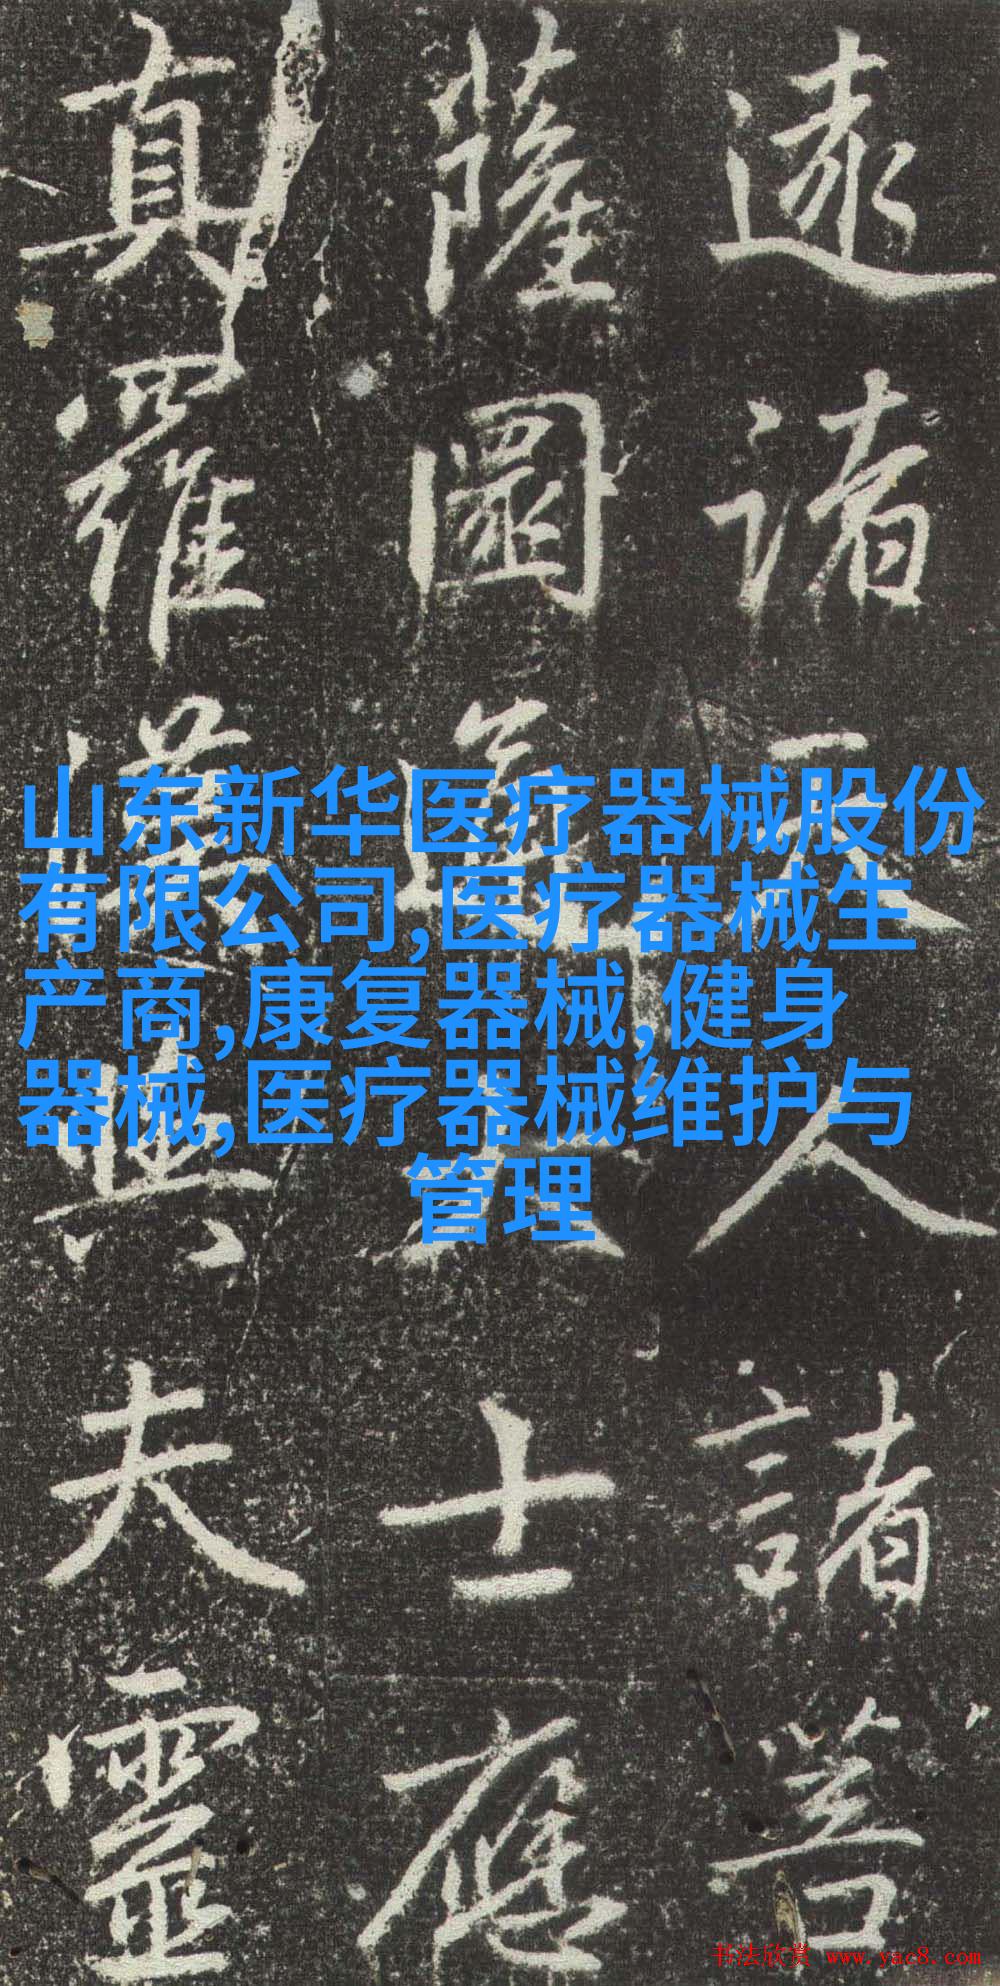 逮諸天人諸菩
薩真大士應
真羅漢與夫靈
山东新华医疗器械股份
有限公司,医疗器械生
产商,康复器械,健身
器械,医疗器械维护与
管理
书法欣赏 www.yac8.com